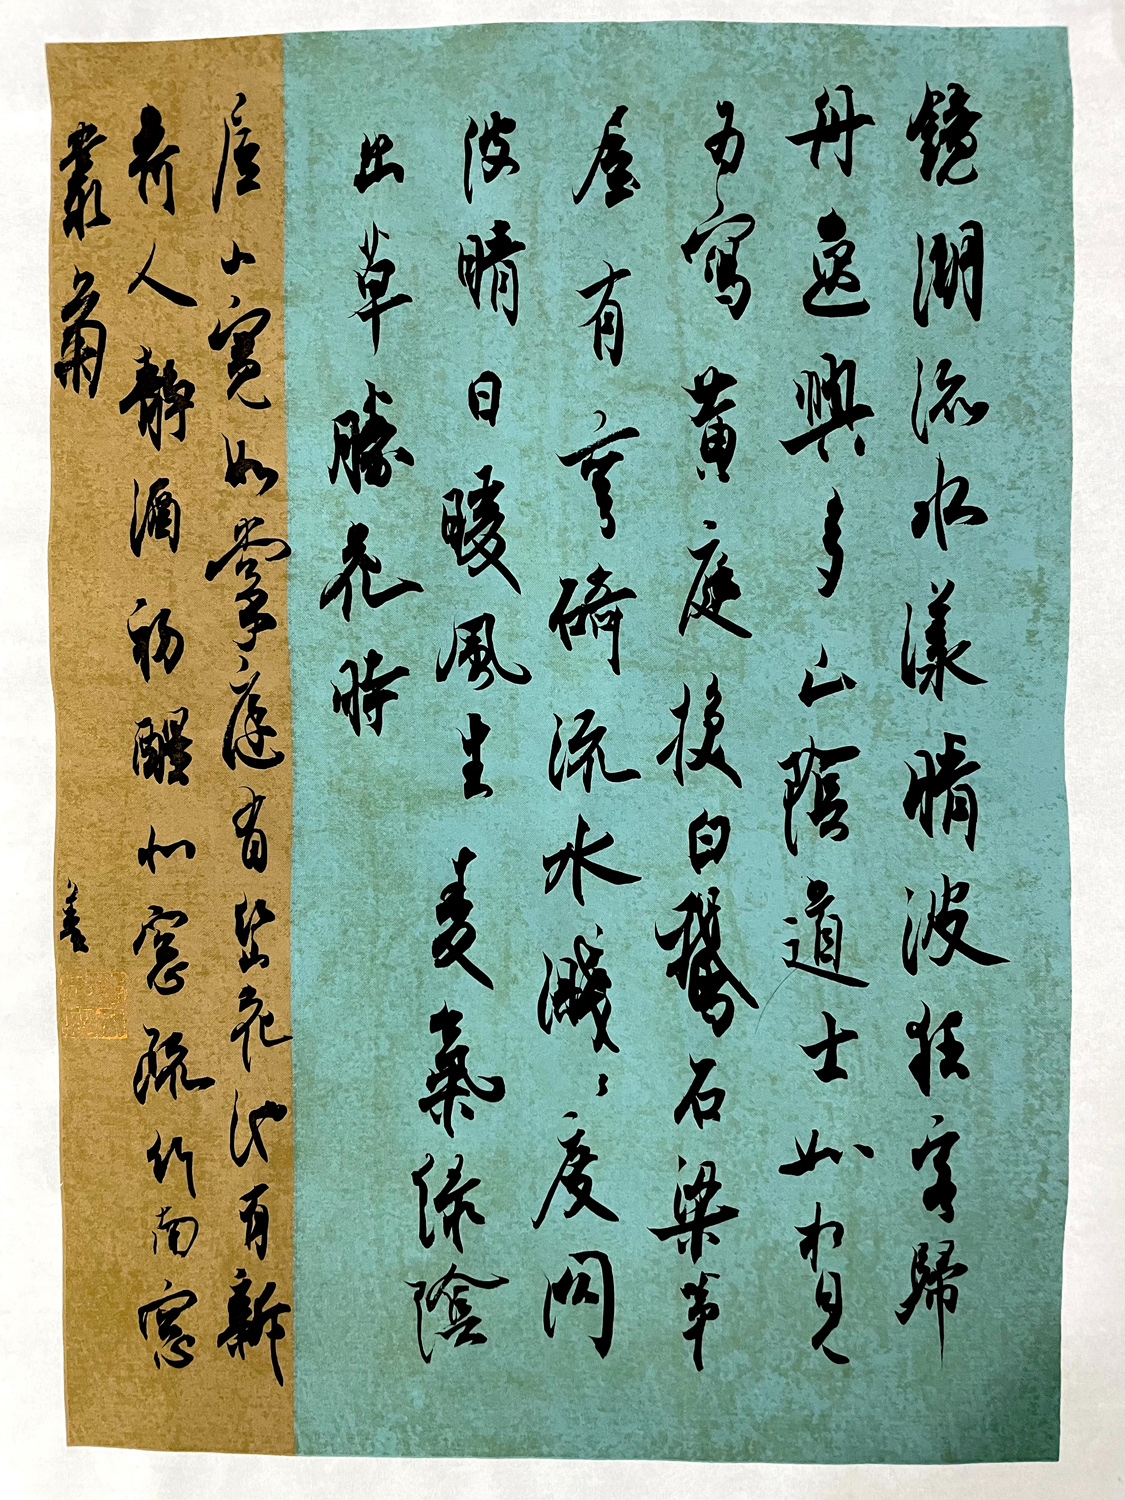 鏡湖流水漾晴波狂客歸
舟逸興多山陰道士如相見
為寫黃庭換白鵝石梁茅
屋有彎碕流水濺濺度兩
陂晴日暖風生麥氣綠陰
幽草勝花時
小寬如掌庭有岩花池有新
荷人靜酒初醒北窗疏竹南窗
叢菊